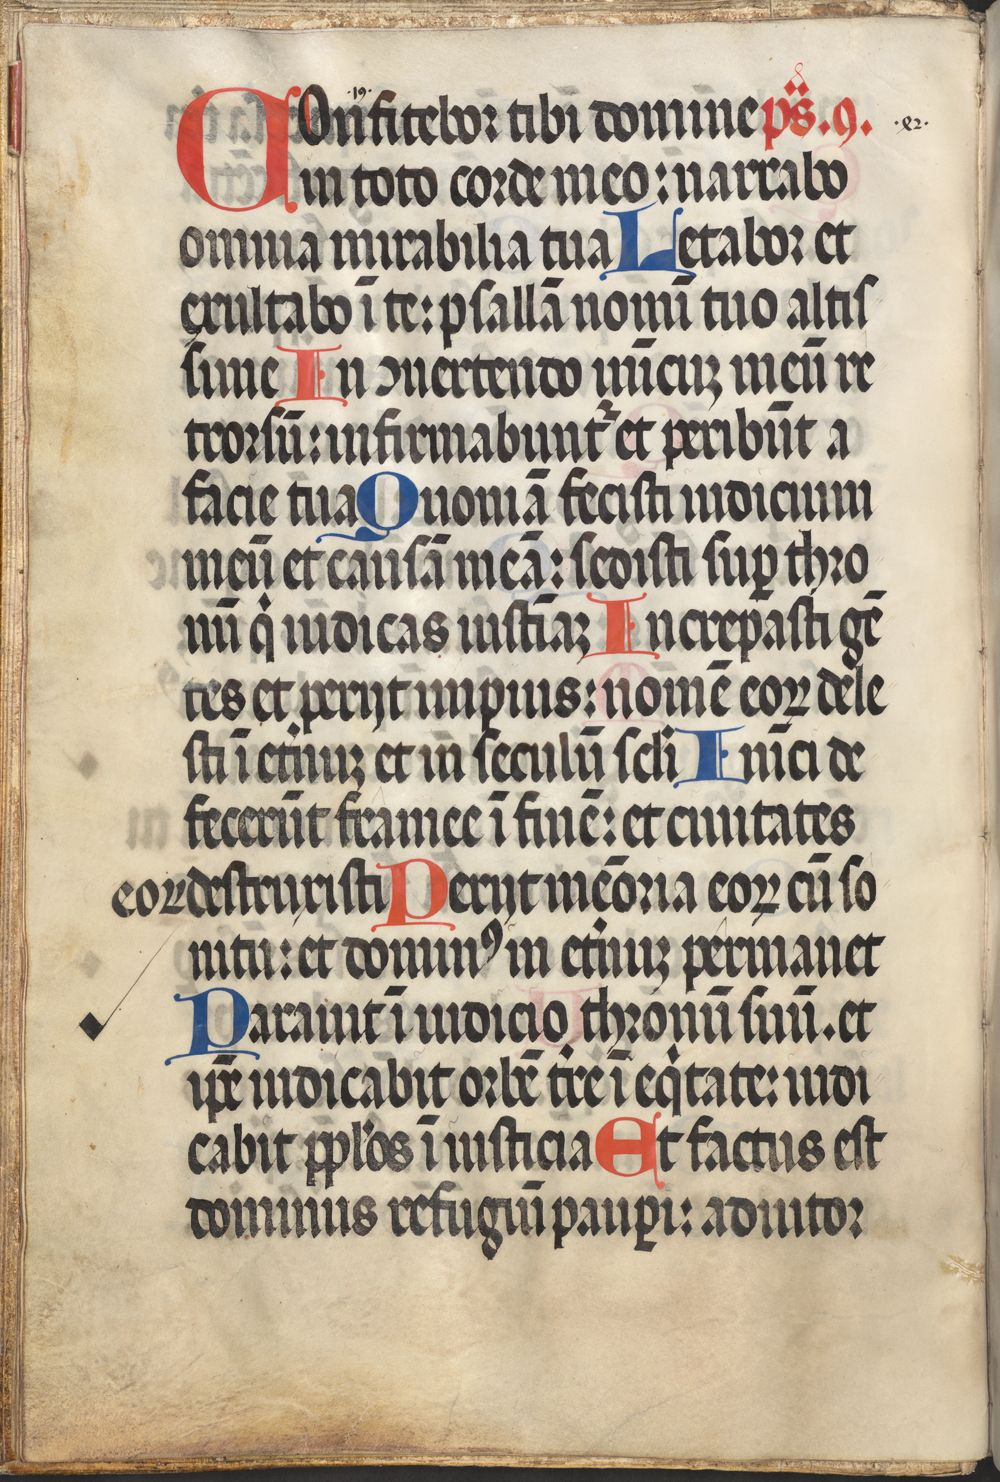 ·19·
COnfitebor tibi domine ps̄.9. ·x2·
in toto corde meo: narrabo
omnia mirabilia tua Letabor et
exultabo ī te: psallā nomī tuo altis
sime In ↄuertendo inīcuꝫ meū re
trorsū: infirmabunt᷑ et peribūt a
facie tua Quoniā fecisti iudicium
meū et causā meā: sedisti suꝑ thro
nū q̇ iudicas iustīaꝫ Increpasti gē
tes et perijt impius: nomē eoꝝ dele
sti ī et̄nuꝫ et in seculū scl̄i Inīci de
fecerūt framee ī finē: et ciuitates
eoꝝ destruxisti Perijt mēoria eoꝝ cū so
nitu: et dominꝰ in et̄nuꝫ permanet
Parauit ī iudicio thronū suū. et
ip̄e iudicabit orbē tr̄e ī eq̇tate: iudi
cabit pp̄los ī iusticia Et factus est
dominus refugiū pauꝑi: adiutor